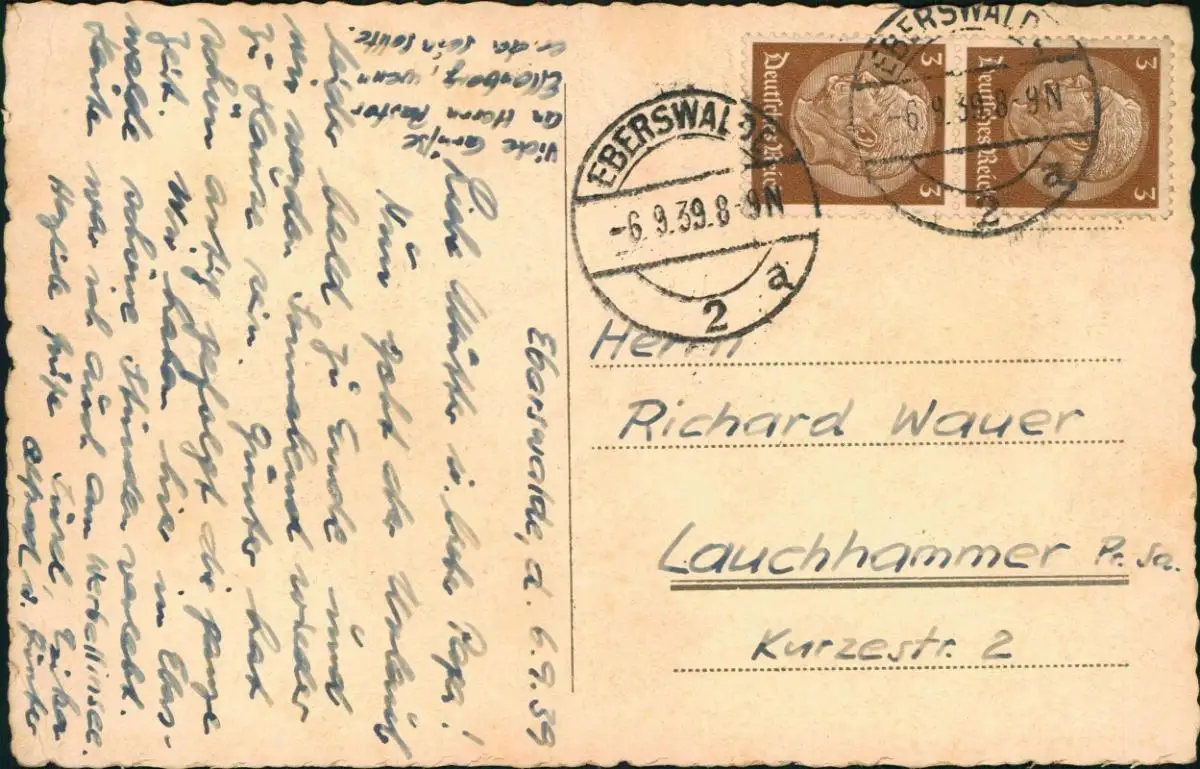 Eberswalde, d. 6.9.39
Liebe Mutter u. lieber Papa!
Nun geht der Urlaub
leider bald zu Ende und
wir werden Sonnabend wieder
zu Hause sein. Günter hat
schön artig gefolgt die ganze
Zeit. Wir haben hier in Ebers-
walde schöne Stunden verlebt.
Heute war ich auch am Werbellinsee.
Herzliche Grüße
Erika
Alfred u. Günter
Viele Grüße
an Herrn Pastor
Ellenberg, wenn
er da sein sollte.
EBERSWALDE
-6.9.39.8-9N
2 a
EBERSWALDE
-6.9.39.8-9N
2 a
Deutsches Reich
3 3
Deutsches Reich
3 3
Herrn
Richard Wauer
Lauchhammer Pr. Sa.
Kurzestr. 2